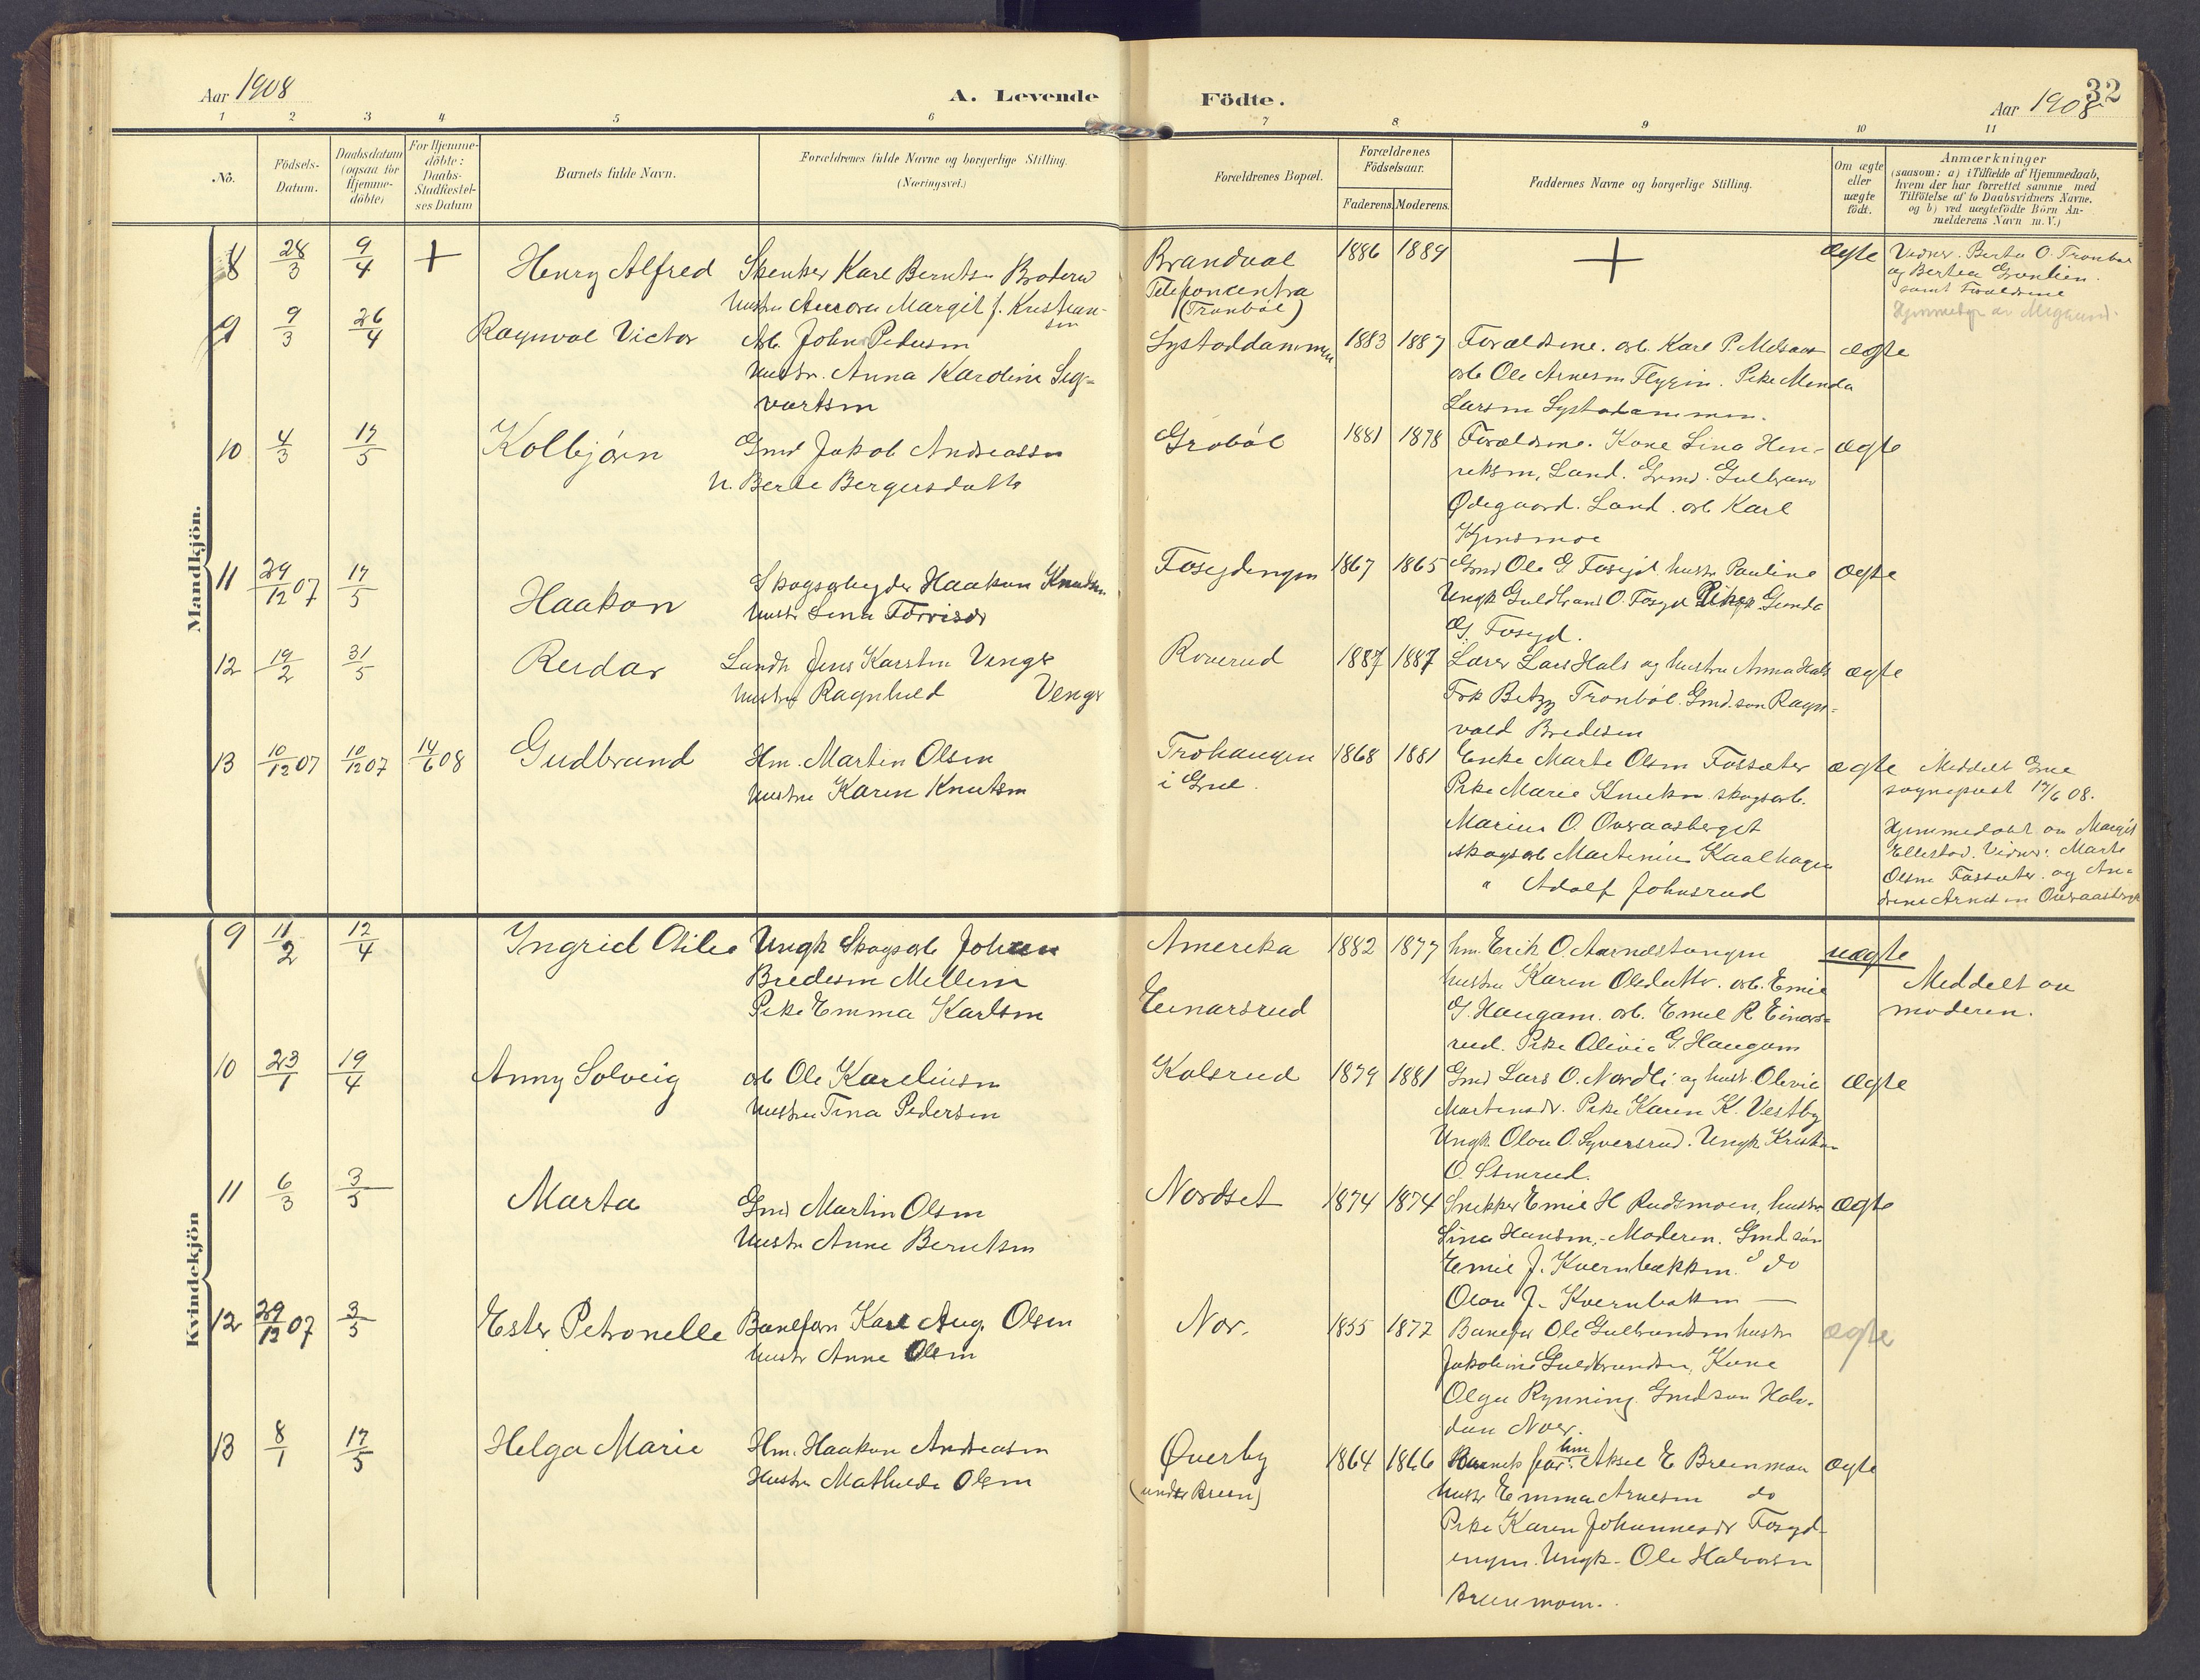 Aar 1908
A. Levende
Födte.
32
Aar 1908
1 2 3 4 5 6 7 8 9 10 11
No.
Födsels-
Datum.
Daabsdatum
(ogsaa for
Hjemme-
döbte)
For Hjemme-
döbte:
Daabs-
Stadfæstel-
ses Datum
Barnets fulde Navn.
Forældrenes fulde Navne og borgerlige Stilling.
(Næringsvei.)
Forældrenes Bopæl.
Forældrenes
Födselsaar.
Faderens. Moderens.
Faddernes Navne og borgerlige Stilling.
Om ægte
eller
uægte
födt.
Anmærkninger
(saasom: a) i Tilfælde af Hjemmedaab,
hvem der har forrettet samme med
Tilföielse af to Daabsvidners Navne.
og b) ved uægtefödte Börn An-
melderens Navn m. V.)
Mandkjön.
8 28/3 9/4 + Henry Alfred
Karl Berntsn
Hustru Aurora Margit f. Kristian-
sen
Brandval
Telefoncentra
(Tronböl)
1886 1889 + ægte
Vidner. Berta O. Tronböl
og Bertea
samt Forældrene
9 9/3 26/4 Ragnval Victor
Arb. John Pedersen
Hustr. Anna Karoline Sig-
vartsen
Lystaddammen 1883 1887
Forældrene. arb. Karl P.
arb Ole Arnesen Pike Menda
Larsen Lystadammen.
ægte
10 4/3 17/5 Kolbjörn
Gmd Jakob Andreassen
H. Berte Bergersdatter
Gröböl 1881 1878
Forældrene. Kone Lina Hen-
riksen, Land. Grmd. Gulbrand
Ødegaard. Land. arb Karl
ægte
11 29/12 07 17/5 Haakon
Skogsarbeyder Haakon Knudsen
Hustr Lina
Foseydengen 1867 1865
Gmd Ole G. Foseyd hustr Pauline
Ungk Guldbrand O. Foseyd Pike Gunda
G. Foseyd.
ægte
12 19/2 31/5 Reidar
Landh Jens Karsten Venger
hustru Ragnhild Venger
Roverud 1887 1887
Lærer Lars Hals og hustru Anna Hals
Frk Betzy Tronböl. Gmd. søn Ragn-
vald Bredesen
ægte
13 10/12 07 10/12 07 14/6 08 Gudbrand
Hm. Martin Olsen
Hustru Karen Knutsen
Trohaugen
i Grue.
1868 1881
Enke Marte Olsen Fossæter
Pike Marie Knutsn skogsarb.
Marius O. Overaasberget
skogsarb Martinius Kaalhagen
" Adolf Johnsrud
ægte
Meddelt Grue
sognepræst 17/6 08.
Hjemmedöbt av Margit
Ellestad. Vidner: Marte
Olsen Fossæter. og An-
Overaasberget
Kvindekjön
9 11/2 12/4 Ingrid Otilie
Ungk Skogsarb Johan
Bredesen Mellem
Pike Emma Karlsen
Amerika
Einarsrud
1882 1877
hm. Erik O. Aarnestangen
hustru Karen Olsdatter. arb. Emil
G. Haugam. arb. Emil R Einars-
rud. Pike Olivia G. Haugam
uægte
Meddelt av
moderen.
10 23/1 19/4 Anny Solveig
arb Ole Kareliusen
Hustru Tina Pedersen
Kolsrud 1879 1881
Gmd Lars O. Nordli og hustr. Olivie
Martinsdr. Pike Karen K. Vestby
Ungk. Olav O. Syversrud. Ungk. Kristian
O. Stenrud.
ægte
11 6/3 3/5 Marta
Gmd Martin Olsen
Hustr Anne Berntsen
Nordset 1874 1874
Snekker Emil H Rudsmoen, hustr
Lina Hansen,- Moderen. Gmd søn
Emil J. Kvernbækken. do
Olav J. Kvernbækken —
ægte
12 29/12 07 3/5 Ester Petronelle
Baneform Karl Aug. Olsen
hustr Anne Olsen
Nor. 1855 1877
Banefor Ole Gulbrandsen hustr
Jakobine Guldbrandsen, Kone
Olga Rynning. Gmdsøn Halv-
dan Noer.
ægte
13 8/1 17/5 Helga Marie
Hm. Haakon Andreasen
Hustru Mathilde Olsen
Øverby
(under Breen)
1864 1866
Barnets far. hm Aksel E Breenmoen
hustr Emma Arnesen do
Pike Karen Johannesdr Foseyd-
engen. Ungk- Ole Halvorsen
Breenmoen.
ægte